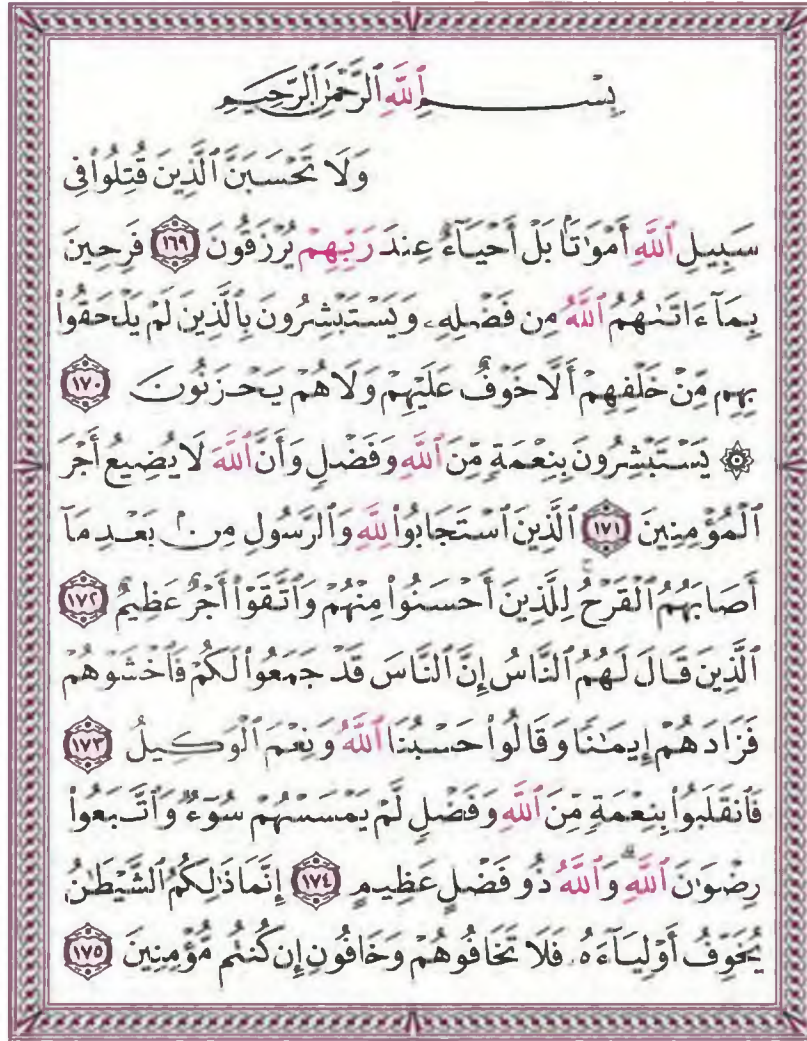 بِسْمِ ٱللَّهِ ٱلرَّحْمَٰنِ ٱلرَّحِيمِ
وَلَا تَحْسَبَنَّ ٱلَّذِينَ قُتِلُوا۟ فِى
سَبِيلِ ٱللَّهِ أَمْوَٰتًۢا بَلْ أَحْيَآءٌ عِندَ رَبِّهِمْ يُرْزَقُونَ ١٦٩ فَرِحِينَ
بِمَآ ءَاتَىٰهُمُ ٱللَّهُ مِن فَضْلِهِۦ وَيَسْتَبْشِرُونَ بِٱلَّذِينَ لَمْ يَلْحَقُوا۟
بِهِم مِّنْ خَلْفِهِمْ أَلَّا خَوْفٌ عَلَيْهِمْ وَلَا هُمْ يَحْزَنُونَ ١٧٠
۞ يَسْتَبْشِرُونَ بِنِعْمَةٍ مِّنَ ٱللَّهِ وَفَضْلٍ وَأَنَّ ٱللَّهَ لَا يُضِيعُ أَجْرَ
ٱلْمُؤْمِنِينَ ١٧١ ٱلَّذِينَ ٱسْتَجَابُوا۟ لِلَّهِ وَٱلرَّسُولِ مِنۢ بَعْدِ مَآ
أَصَابَهُمُ ٱلْقَرْحُ لِلَّذِينَ أَحْسَنُوا۟ مِنْهُمْ وَٱتَّقَوْا۟ أَجْرٌ عَظِيمٌ ١٧٢
ٱلَّذِينَ قَالَ لَهُمُ ٱلنَّاسُ إِنَّ ٱلنَّاسَ قَدْ جَمَعُوا۟ لَكُمْ فَٱخْشَوْهُمْ
فَزَادَهُمْ إِيمَٰنًا وَقَالُوا۟ حَسْبُنَا ٱللَّهُ وَنِعْمَ ٱلْوَكِيلُ ١٧٣
فَٱنقَلَبُوا۟ بِنِعْمَةٍ مِّنَ ٱللَّهِ وَفَضْلٍ لَّمْ يَمْسَسْهُمْ سُوٓءٌ وَٱتَّبَعُوا۟
رِضْوَٰنَ ٱللَّهِ ۗ وَٱللَّهُ ذُو فَضْلٍ عَظِيمٍ ١٧٤ إِنَّمَا ذَٰلِكُمُ ٱلشَّيْطَٰنُ
يُخَوِّفُ أَوْلِيَآءَهُۥ فَلَا تَخَافُوهُمْ وَخَافُونِ إِن كُنتُم مُّؤْمِنِينَ ١٧٥